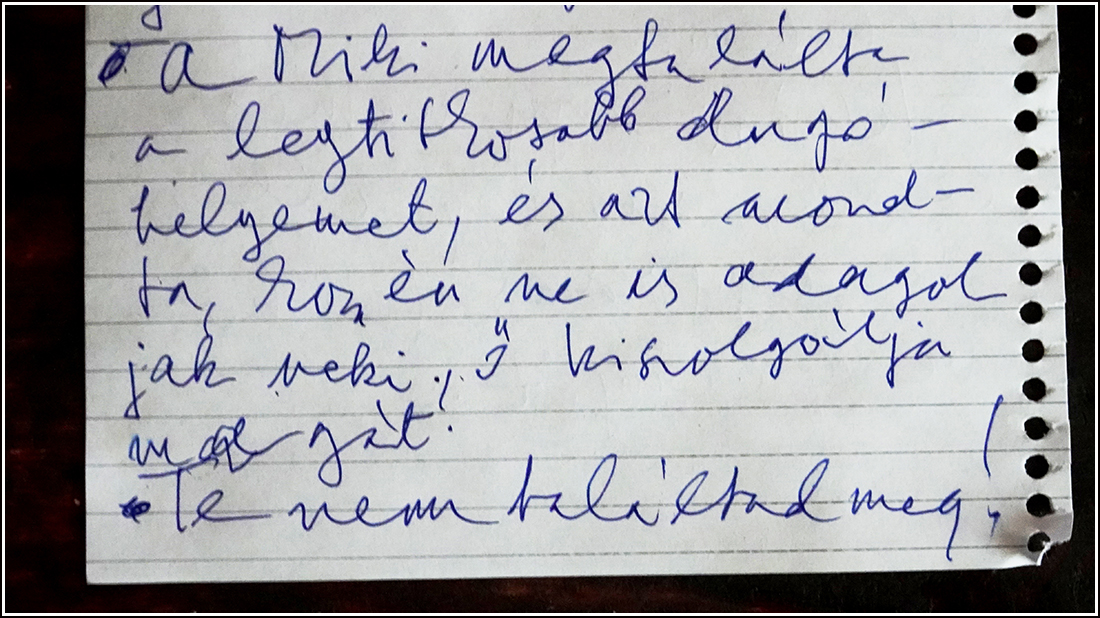 • A Miki megtalálta
a legtitkosabb dugó-
helyemet, és azt mond-
ta, hogy én ne is adagol
jak neki, ő kiszolgálja
magát.
• Te nem találtad meg!